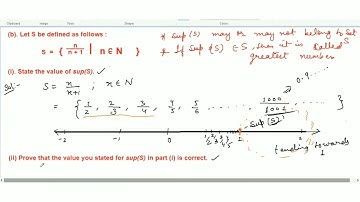 (b). Let S be defined as follows : * Sup(S) may or may not belong to S
S = { n/n+1 | n ∈ N } * If Sup(S) ∈ S, then it is called greatest number
(i). State the value of sup(S). ✓
Sol:- S = n/n+1 ; n ∈ N 0.9..
= { 1/2, 2/3, 3/4, 4/5, 5/6 ...... 1000/1001 ..... }
Sup(S)
-2 -1 0 1/2 2/3 3/4 1 2
tending towards 1
(ii) Prove that the value you stated for sup(S) in part (i) is correct. ✓